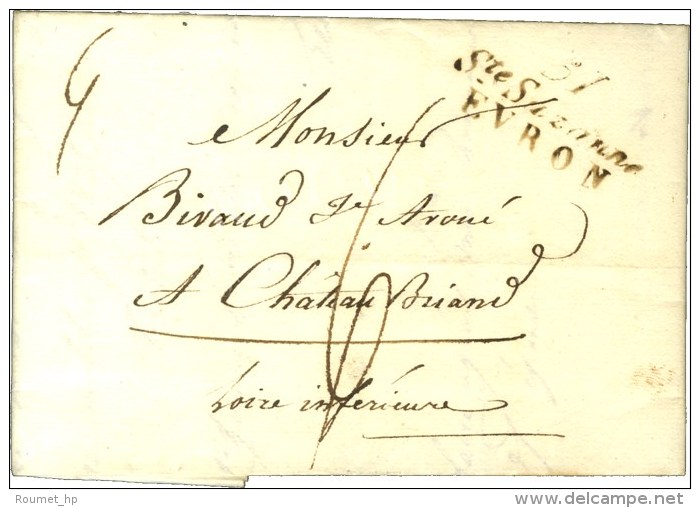 51
Ste Suzanne
EVRON
Monsieur
Biraud Je Avoué
A Château Briand
Loire inférieure
Roumet_hp
www.delcampe.net